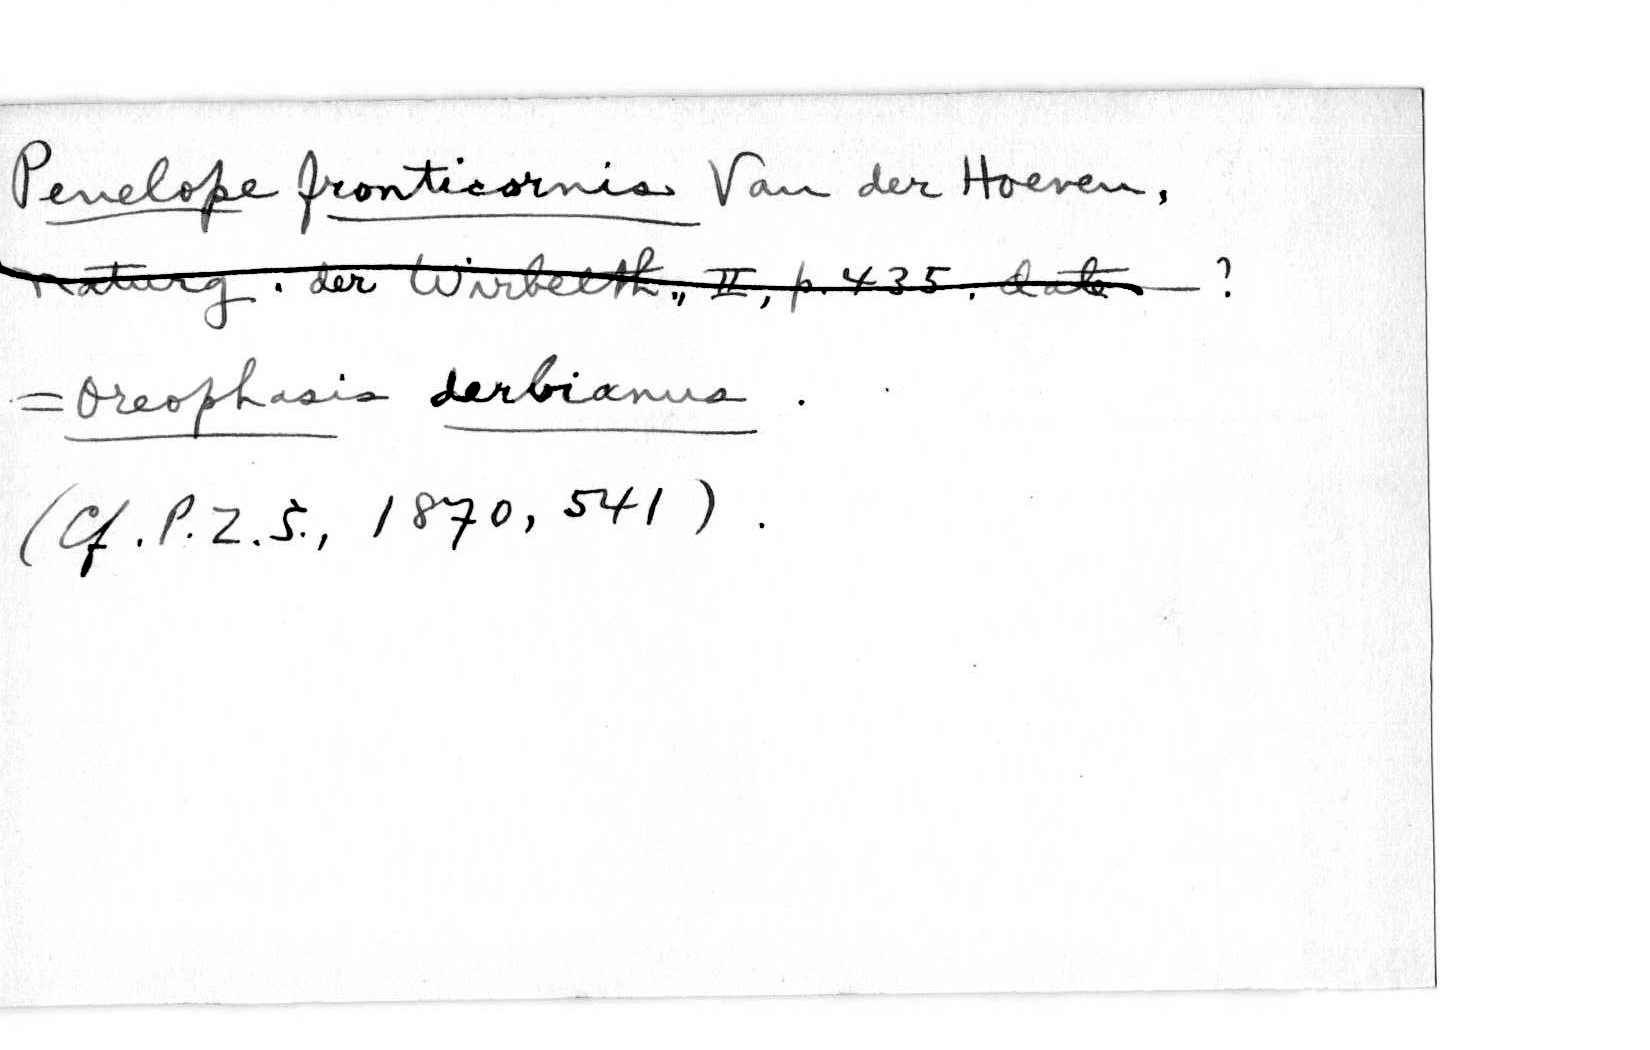 Penelope fronticornis Van der Hoeven,
Naturg. der Wirbelth., II, p. 435. date — ?
= Oreophasis derbianus.
(Cf. P. Z. S., 1870, 541).